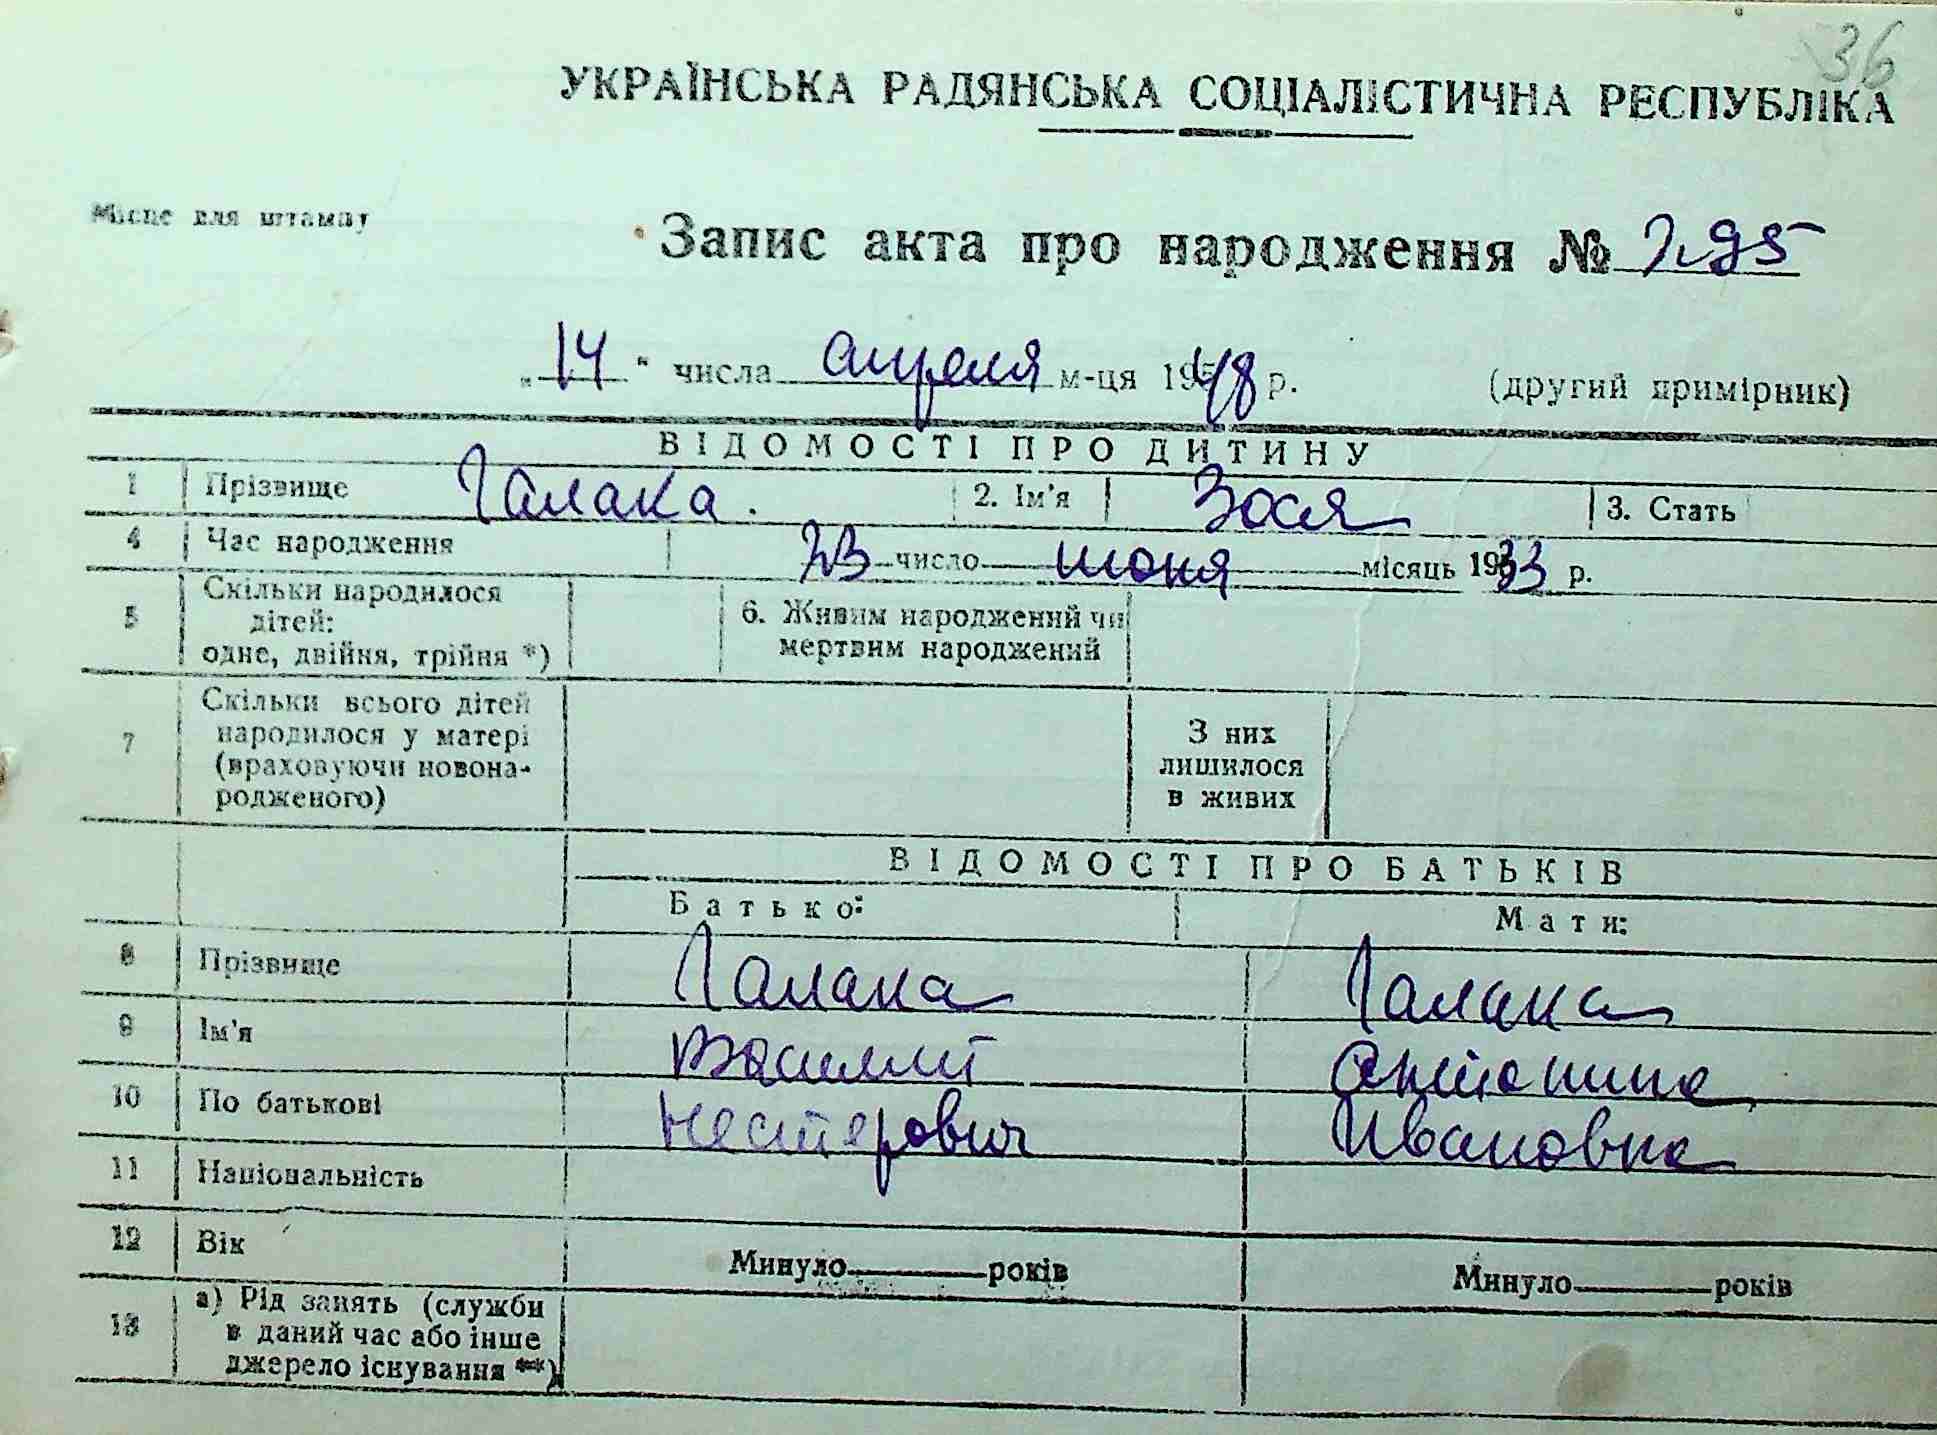 36
УКРАЇНСЬКА РАДЯНСЬКА СОЦІАЛІСТИЧНА РЕСПУБЛІКА
Місце для штампу
Запис акта про народження № 295
„ 14 “ числа апреля м-ця 1948 р. (другий примірник)
ВІДОМОСТІ ПРО ДИТИНУ
1 Прізвище Галака. 2. Ім'я Зося 3. Стать
4 Час народження 23 число июня місяць 1933 р.
5 Скільки народилося дітей: одне, двійня, трійня *) 6. Живим народжений чи мертвим народжений
7 Скільки всього дітей народилося у матері (враховуючи новонародженого) З них лишилося в живих
ВІДОМОСТІ ПРО БАТЬКІВ
Батько: Мати:
8 Прізвище Галака Галака
9 Ім'я Василий Антонина
10 По батькові Нестерович Ивановна
11 Національність
12 Вік Минуло років Минуло років
13 а) Рід занять (служби в даний час або інше джерело існування **)